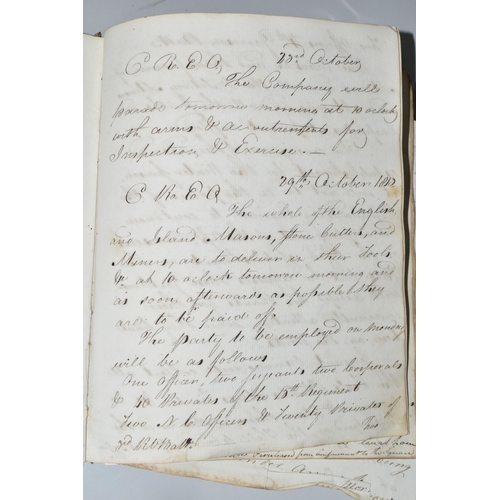 C. R. E. O, 23rd October,
The Company will
parade tomorrow morning at 10 oClock
with arms & accoutrements for
Inspection & Exercise.—
C R. E O 29th October 1812
The whole of the English,
and Island Masons, Stone Cutters, and
Miners, are to deliver in their Tools
&c at 10 oClock tomorrow morning and
as soon afterwards as possible they
are to be paid off.
The party to be employed on Monday
will be as follows
One Officer, two Serjeants two Corporals
& 40 Privates of the 15th Regiment
Two N. C. Officers & Twenty Privates of
3d Batt.
Two
from
released from confinement to the Square